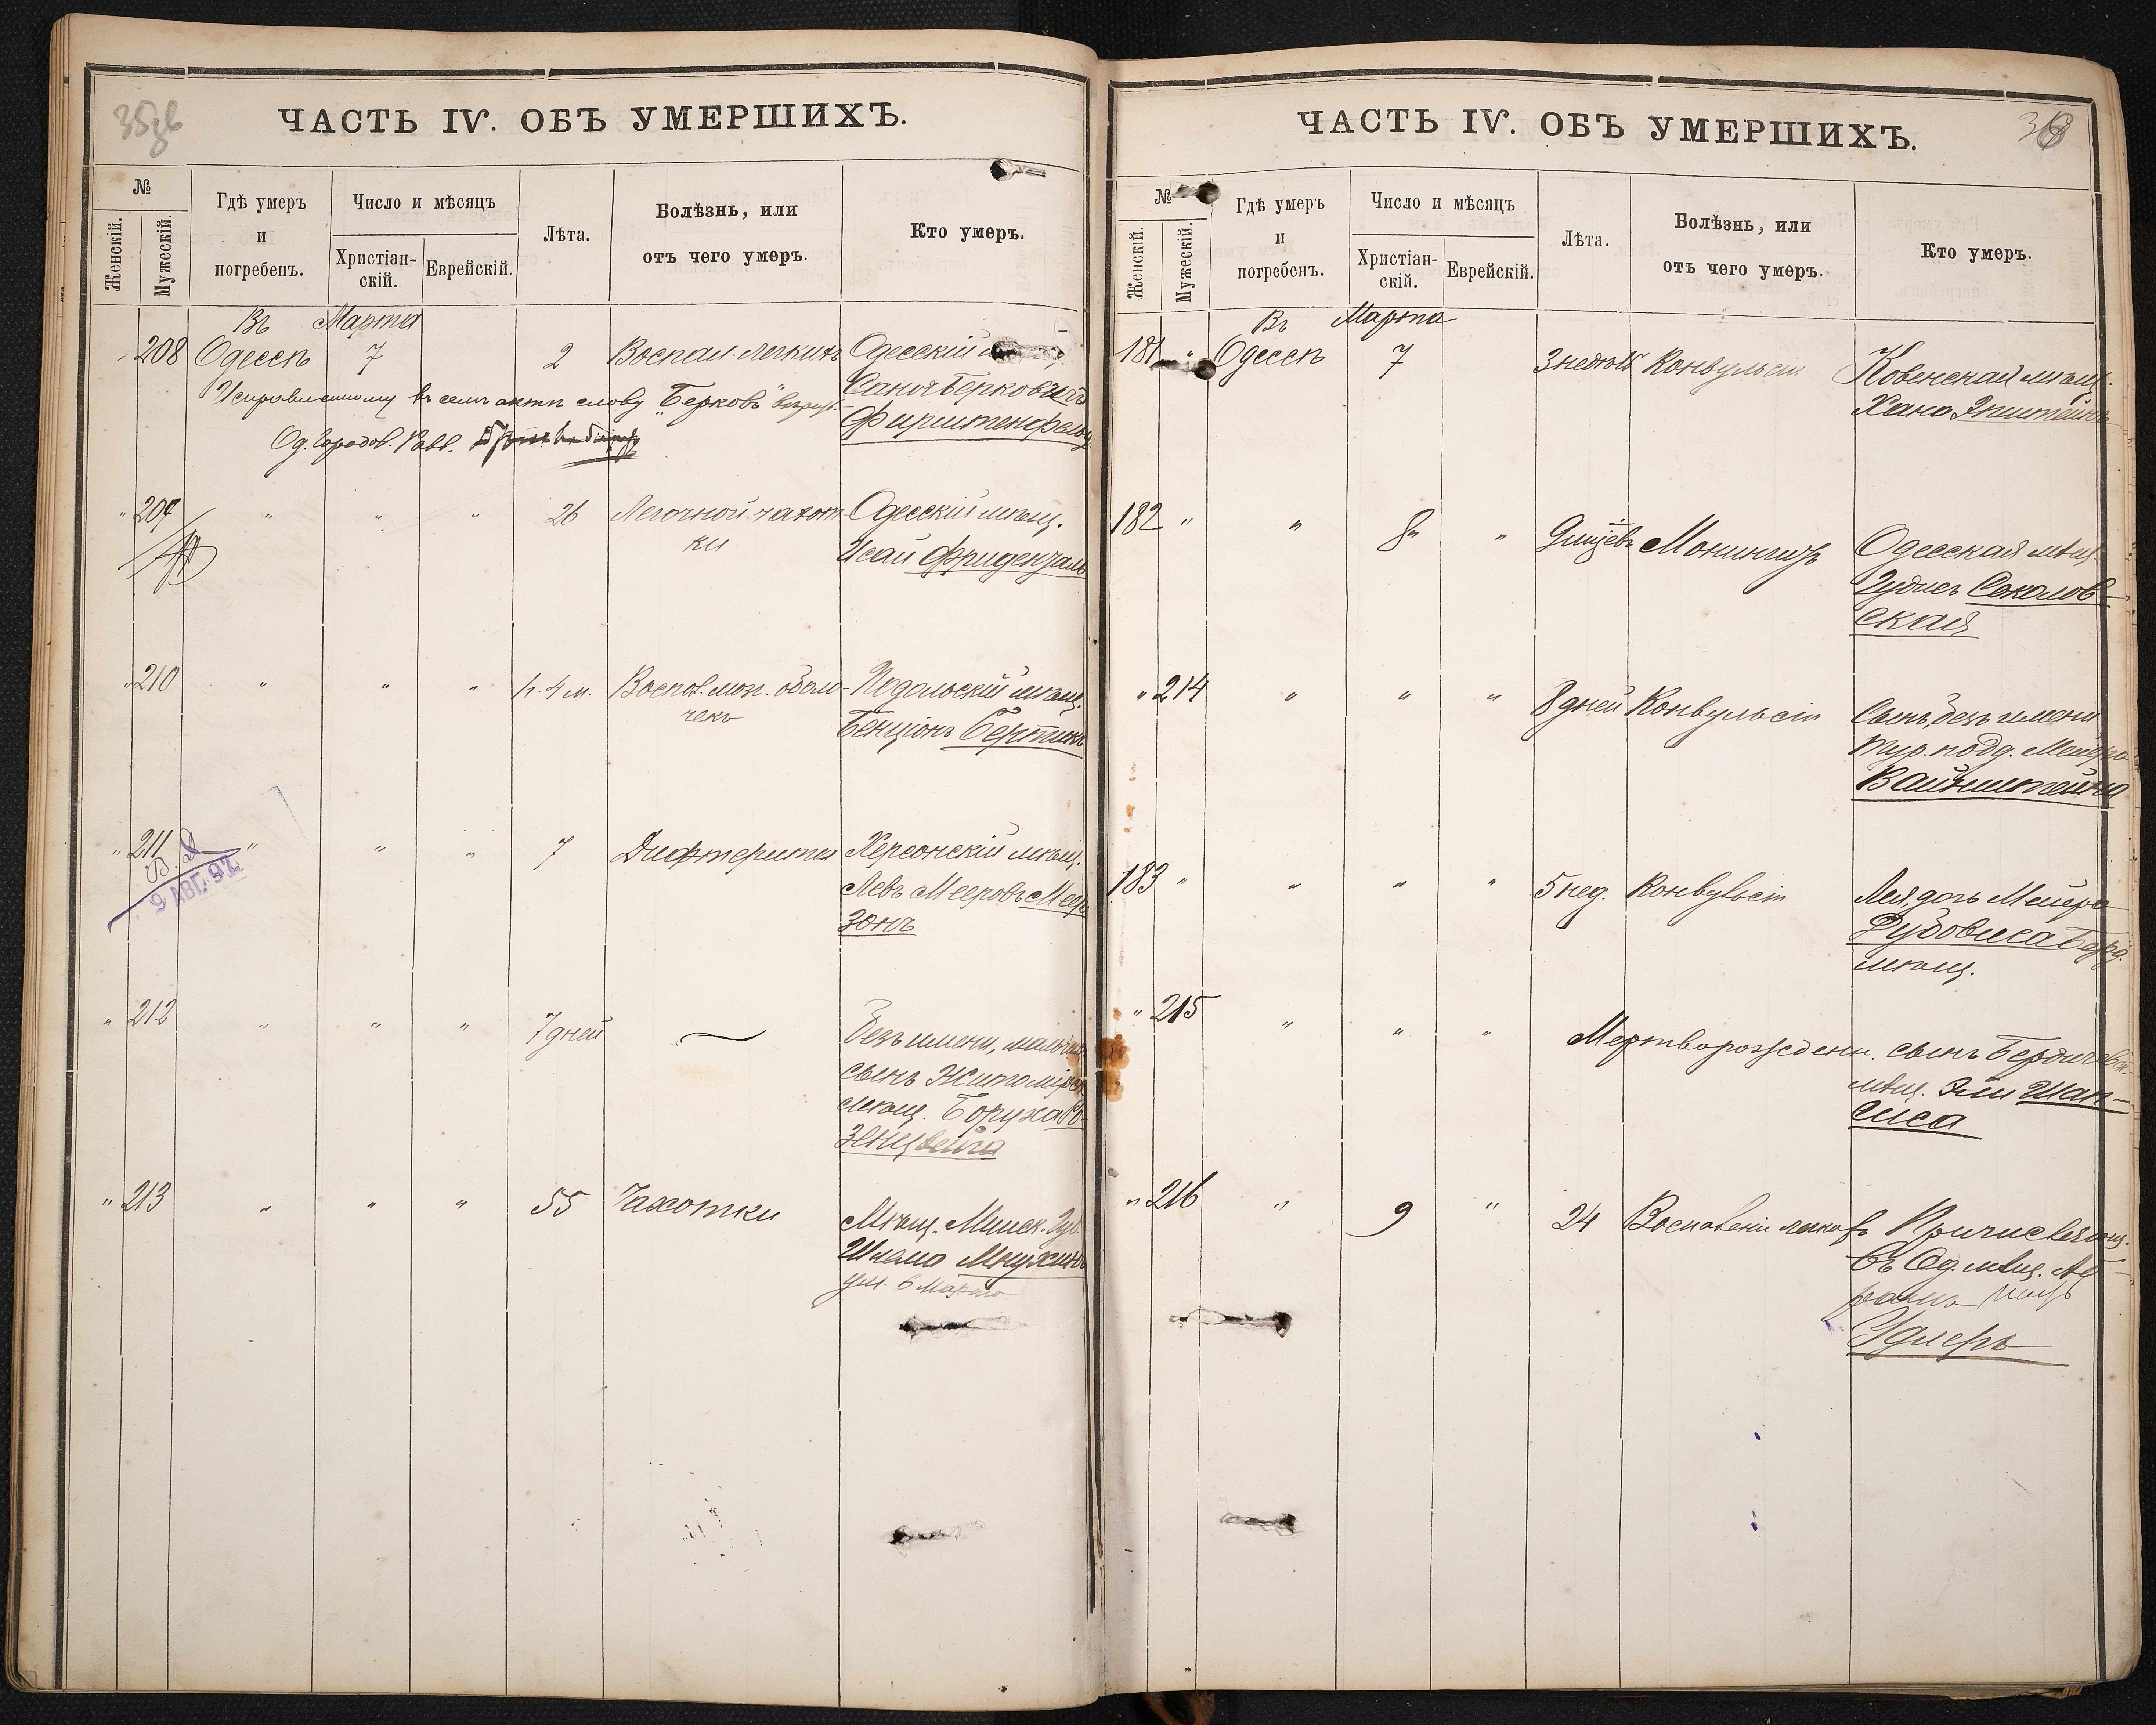 35
ЧАСТЬ IV. ОБЪ УМЕРШИХЪ.
№
Женскій.
Мужескій.
Гдѣ умеръ
и
погребенъ.
Число и мѣсяцъ
Христіан-
скій.
Еврейскій.
Лѣта.
Болѣзнь, или
отъ чего умеръ.
Кто умеръ.
Въ Марта
208 Одессѣ 7 2 Воспал. легкихъ Одесскій
Берковъ
Исправленному въ семъ актѣ слову „Берковъ"
Од. Городов. Равв.
" 209 " " " 26 Легочной чахот- Одесскій мѣщ.
ки
Исай Фриденталь
" 210 " " " 1г. 4 м. Воспал. мозг. оболо- Подольскій мѣщ.
чекъ
Бенціонъ
" 211 " " " 7 Дифтерита Херсонскій мѣщ.
В. Д
9 АВГ. 92
Левъ Мееровъ Меер-
зонъ
" 212 " " " 7 дней — Безъ имени, мальчикъ
сынъ Житомірск.
мѣщ. Боруха Ро-
зенцвейга
" 213 " " " 55 Чахотки
Мѣщ. Минск. Губ.
Шлема Мнухинъ
ум. в Марте
36
ЧАСТЬ IV. ОБЪ УМЕРШИХЪ.
№
Женскій.
Мужескій.
Гдѣ умеръ
и
погребенъ.
Число и мѣсяцъ
Христіан-
скій.
Еврейскій.
Лѣта.
Болѣзнь, или
отъ чего умеръ.
Кто умеръ.
Въ Марта
181 " Одессѣ 7 3 недѣль Конвульсіи Ковенская мѣщ.
Хана Эпштейнъ
182 " " 8 " 9 мѣсяцевъ Менингитъ Одесская мѣщ.
Соколов-
ская
" 214 " " " 8 дней Конвульсіи Сынъ, безъ имени
тур. подд. Мейера
Вайнштейна
183 " " " " 5 нед. Конвульсіи Лея, дочь Мейера
Рудовиса Берд.
мѣщ.
" 215 " " " Мертворожденн. сынъ Бердичевск.
мѣщ. Эли Шап-
сиса
" 216 " 9 " 24 Воспаленія легкихъ Причисляющ.
въ Од. мѣщ. Аб-
рамъ
Удлеръ